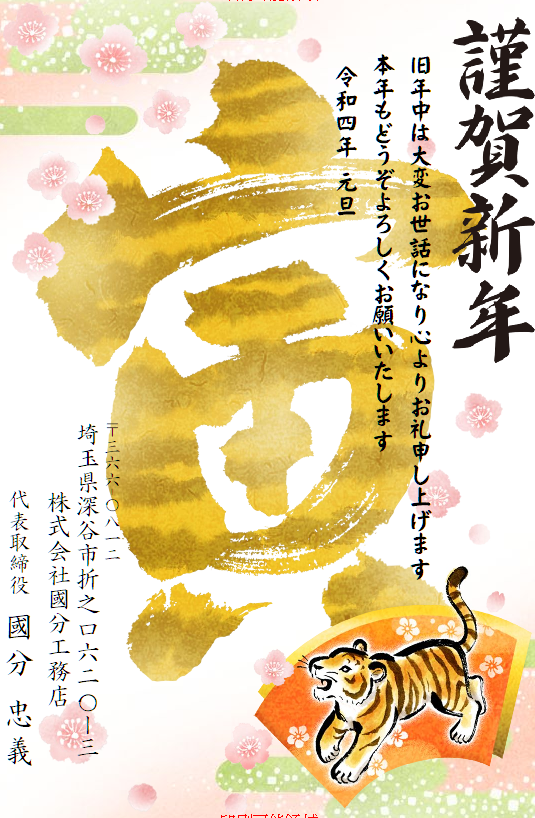 謹賀新年
旧年中は大変お世話になり心よりお礼申し上げます
本年もどうぞよろしくお願いいたします
令和四年 元旦
寅
〒三六六-〇八一二
埼玉県深谷市折之口六二〇ー三
株式会社國分工務店
代表取締役 國分 忠義